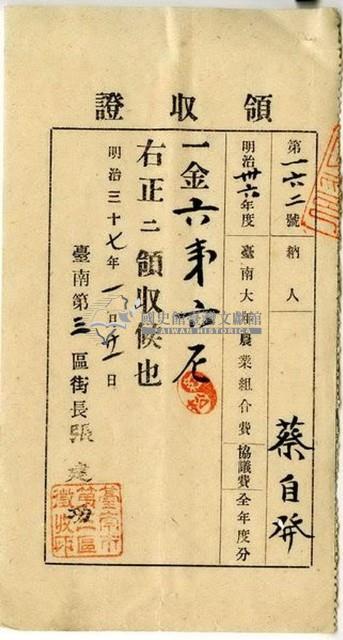 領收證
第一六二號 納人 蔡自酉
明治卅六年度 臺南大 農業組合費 協議費全年度分
一金六 六
右正ニ領收候也
明治三十七年一月 日
臺南第三區街長 張建功
國史館臺灣文獻館
TAIWAN HISTORICA
臺南市第三區徵收印